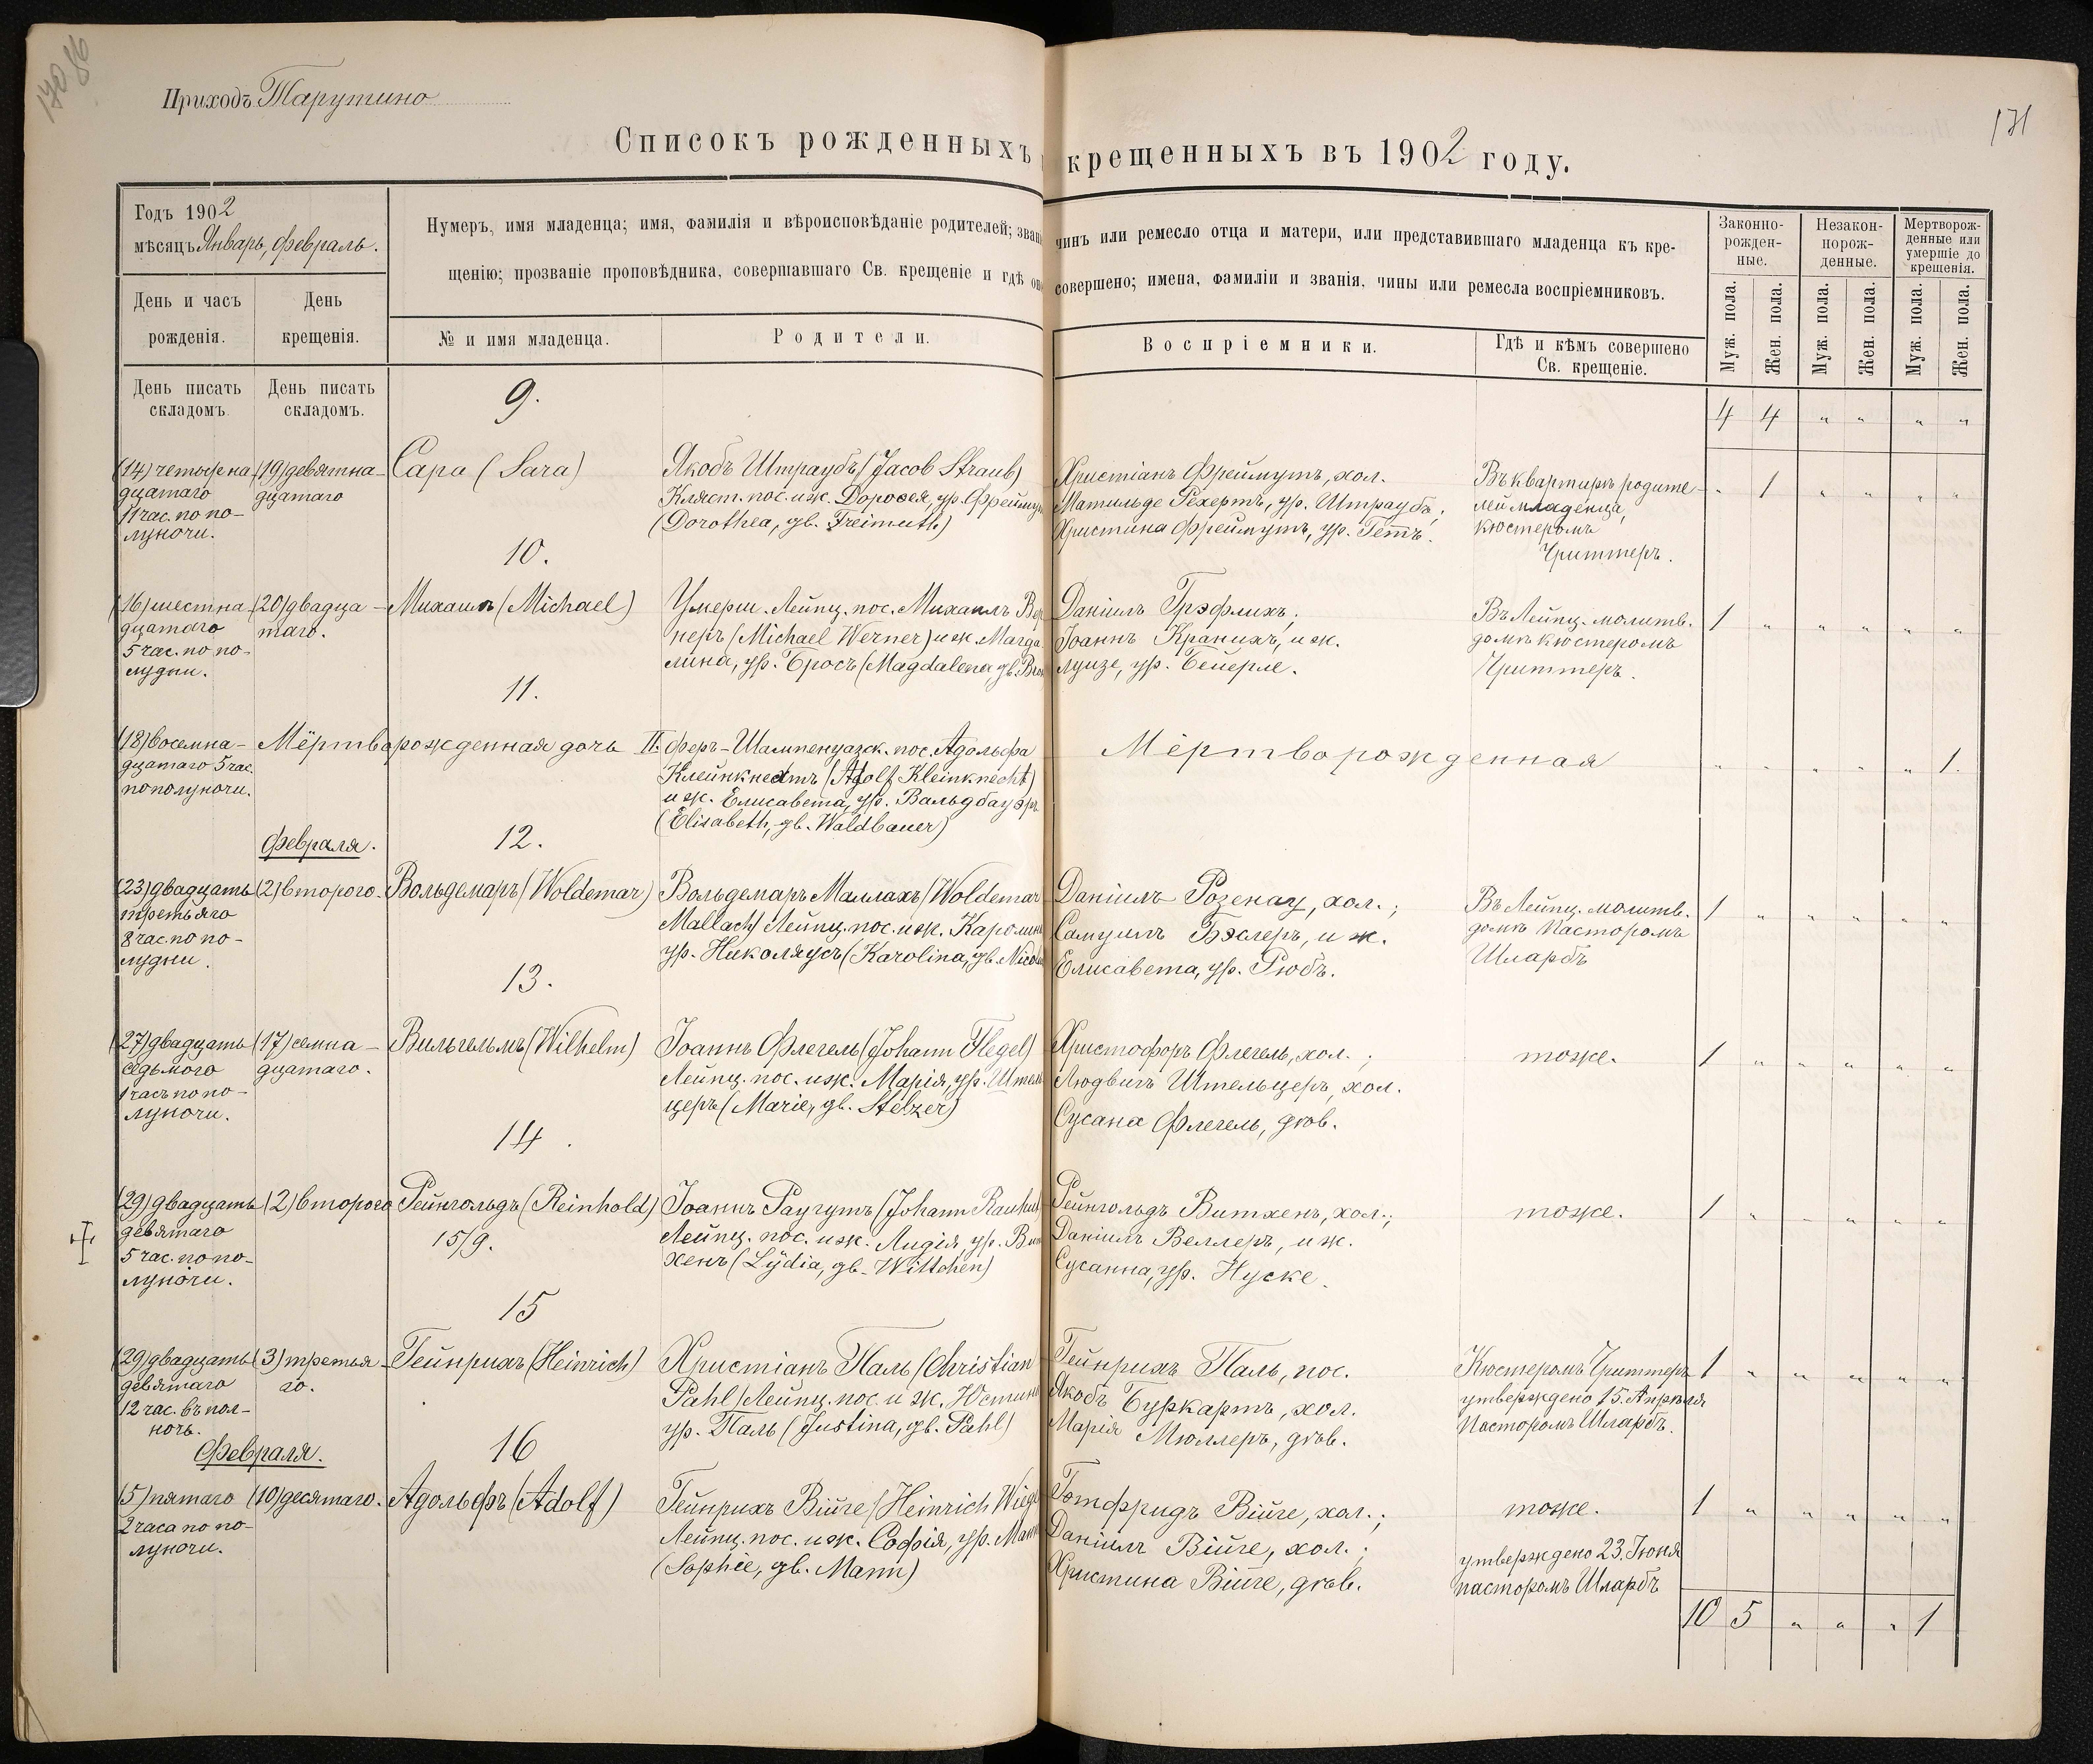 170 86
Приходъ Тарутино
171
Списокъ рожденныхъ крещенныхъ въ 1902 году.
Годъ 1902
мѣсяцъ Январь, Февраль.
День и часъ рожденія.
День крещенія.
Нумеръ, имя младенца; имя, фамилія и вѣроисповѣданіе родителей; чинъ или ремесло отца и матери, или представившаго младенца къ кре-
щенію; прозваніе проповѣдника, совершавшаго Св. крещеніе и гдѣ совершено; имена, фамиліи и званія, чины или ремесла воспріемниковъ.
№ и имя младенца.
Родители.
Воспріемники.
Гдѣ и кѣмъ совершено
Св. крещеніе.
Законно-
рожден-
ные.
Незакон-
норож-
денные.
Мертворож-
денные или
умершіе до
крещенія.
Муж. пола.
Жен. пола.
Муж. пола.
Жен. пола.
Муж. пола.
Жен. пола.
День писать
складомъ.
День писать
складомъ.
4 4 " " " "
9.
(14) четырна-
дцатаго
11 час. по по-
луночи.
(19) девятна-
дцатаго
Сара (Sara)
Якобъ Штраубъ (Jacob Straub)
Кляст. пос. и ж. Доротея, ур. Фреймут
(Dorothea, gb. Freimuth)
Христіанъ Фреймутъ, хол.
Матильде Рехертъ, ур. Штраубъ;
Христина Фреймутъ, ур. Гетъ.
Въ квартирѣ родите-
лей младенца,
кюстеромъ
Чриттеръ.
" 1 " " " "
10.
(16) шестна-
дцатаго
5 час. по по-
лудни.
(20) двадца-
таго.
Михаилъ (Michael)
Умерш. Лейпц. пос. Михаилъ Вер
неръ (Michael Werner) и ж. Магда
лина, ур. Бросъ (Magdalena, gb. Bros
Даніилъ Грэфлихъ;
Іоаннъ Кранихъ, и ж.
Луизе, ур. Бейерле.
Въ Лейпц. молитв.
домѣ кюстеромъ
Чриттеръ.
1 " " " " "
11.
(18) восемна-
дцатаго 5 час.
по полуночи.
Мёртворожденная дочь
II. Феръ-Шампенуазск. пос. Адольфа
Клейнкнехтъ (Adolf Kleinknecht)
и ж. Елисавета, ур. Вальдбауэръ
(Elisabeth, gb. Waldbauer)
Мёртворожденная
" " " " " 1.
Февраля.
12.
(23) двадцать
третьяго
8 час. по по-
лудни.
(2) второго.
Вольдемаръ (Woldemar)
Вольдемаръ Маллахъ (Woldemar
Mallach) Лейпц. пос. и ж. Каролина
ур. Николяусъ (Karolina, gb. Nicol
Даніилъ Розенау, хол.;
Самуилъ Бэслеръ, и ж.
Елисавета, ур. Рюбъ.
Въ Лейпц. молитв.
домѣ Пасторомъ
Шларбъ
1 " " " " "
13.
(27) двадцать
седьмого
1 часъ по по-
луночи.
(17) семна-
дцатаго.
Вильгельмъ (Wilhelm)
Іоаннъ Флегель (Johann Flegel)
Лейпц. пос. и ж. Марія, ур. Штель
церъ (Marie, gb. Stelzer)
Христофоръ Флегель, хол.;
Людвигъ Штельцеръ, хол.
Сусана Флегель, дѣв.
тоже.
1 " " " " "
14.
(29) двадцать
девятаго
5 час. по по-
луночи.
(2) второго
Рейнгольдъ (Reinhold)
15/9.
Іоаннъ Раугутъ (Johann Rauhut
Лейпц. пос. и ж. Лидія, ур. Вит
хенъ (Lydia, gb. Wittchen)
Рейнгольдъ Витхенъ, хол.;
Даніилъ Веллеръ, и ж.
Сусанна, ур. Нуске.
тоже.
1 " " " " "
15
(29) двадцать
девятаго
12 час. въ пол-
ночь.
(3) третья-
го.
Гейнрихъ (Heinrich)
Христіанъ Паль (Christian
Pahl) Лейпц. пос. и ж. Юстина
ур. Паль (Justina, gb. Pahl)
Гейнрихъ Паль, пос.
Якобъ Буркартъ, хол.
Марія Мюллеръ, дѣв.
Кюстеромъ Чриттеръ
утверждено 15. Апрѣля
Пасторомъ Шларбъ.
1 " " " " "
Февраля.
16
(5) пятаго
2 часа по по-
луночи.
(10) десятаго.
Адольфъ (Adolf)
Гейнрихъ Війге (Heinrich Wiege
Лейпц. пос. и ж. Софія, ур. Манн
(Sophie, gb. Mann)
Готфридъ Війге, хол.;
Даніилъ Війге, хол.;
Христина Війге, дѣв.
тоже.
утверждено 23. Іюня
пасторомъ Шларбъ
1 " " " " "
10 5 " " " 1